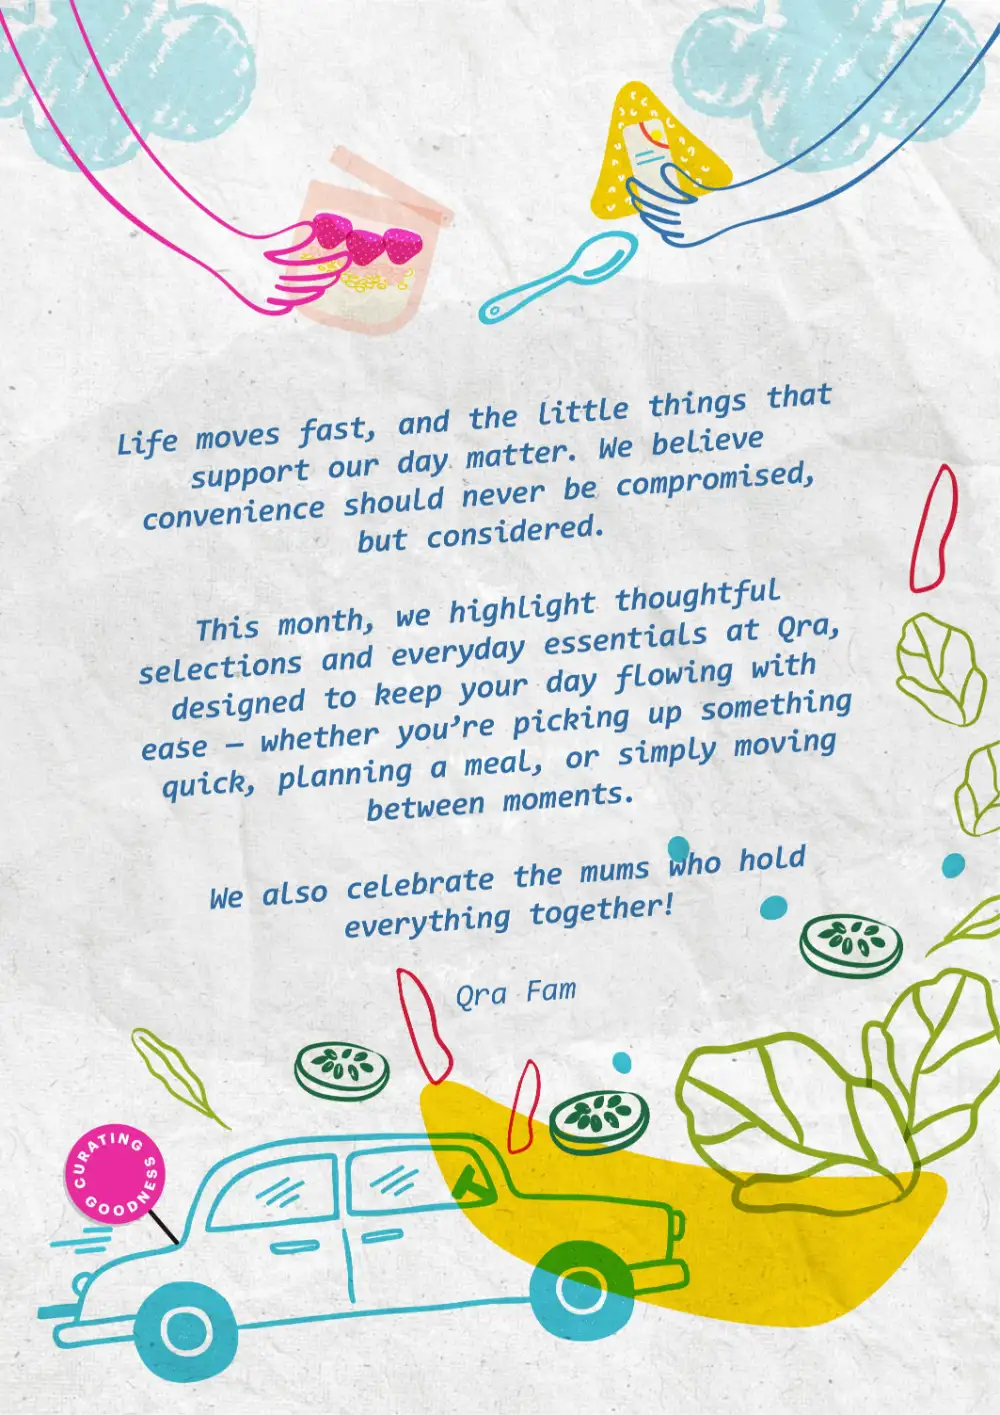 Life moves fast, and the little things that
support our day matter. We believe
convenience should never be compromised,
but considered.
This month, we highlight thoughtful
selections and everyday essentials at Qra,
designed to keep your day flowing with
ease – whether you’re picking up something
quick, planning a meal, or simply moving
between moments.
We also celebrate the mums who hold
everything together!
Qra Fam
CURATING
GOODNESS